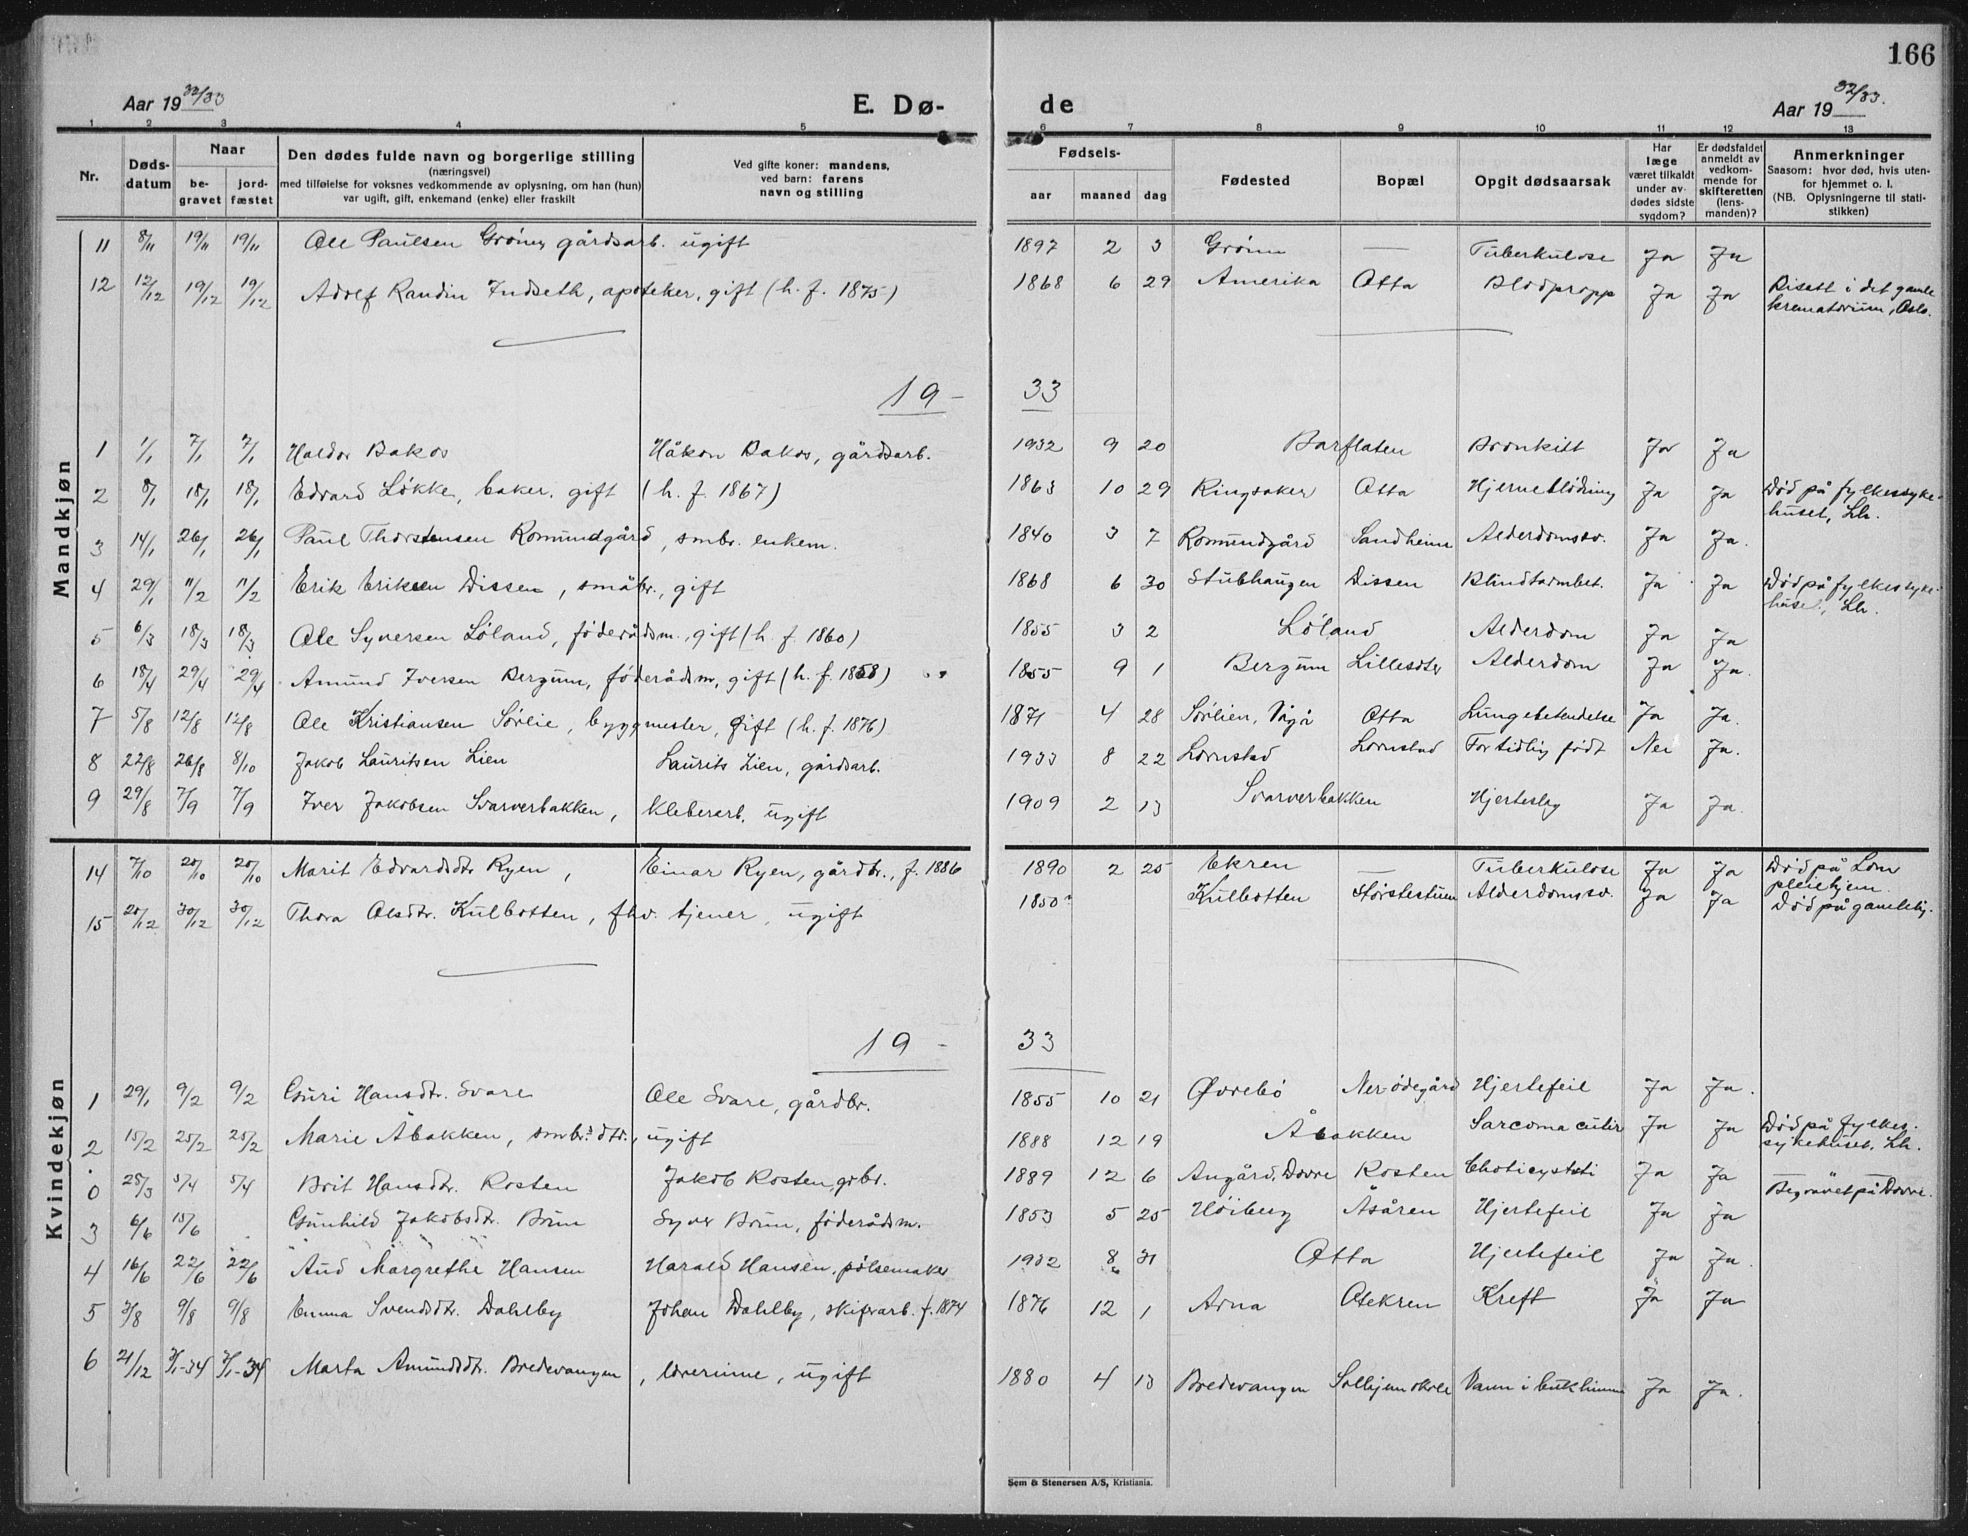 166
Aar 19 32/33 E. Dø- de Aar 19 32/33.
1 2 3 4 5 6 7 8 9 10 11 12 13
Nr. Døds-datum Naar be-gravet jord-fæstet Den dødes fulde navn og borgerlige stilling (næringsvei) med tilføielse for voksnes vedkommende av oplysning, om han (hun) var ugift, gift, enkemand (enke) eller fraskilt Ved gifte koner: mandens, ved barn: farens navn og stilling Fødsels- aar maaned dag Fødested Bopæl Opgit dødsaarsak Har læge været tilkaldt under av-dødes sidste sygdom? Er dødsfaldet anmeldt av vedkom-mende for skifteretten (lens-manden)? Anmerkninger Saasom: hvor død, hvis uten-for hjemmet o. l. (NB. Oplysningerne til stati-stikken)
Mandkjøn
11 8/11 19/11 19/11 Ole Paulsen Grønn gårdsarb. ugift 1897 2 3 Grønn — Tuberkulose Ja Ja
12 12/12 19/12 19/12 Adolf Randin Indseth, apoteker, gift (h. f. 1875) 1868 6 29 Amerika Otta Blodpropp Ja Ja Bisatt i det gamle
krematorium, Oslo.
19- 33
1 1/1 7/1 7/1 Haldor Bakos Håkon Bakos, gårdsarb. 1932 9 20 Barflaten Bronkitt Ja Ja
2 8/1 18/1 18/1 Edvard Løkke, baker, gift (h. f. 1867) 1863 10 29 Ringsaker Otta Hjerneblødning Ja Ja Død på fylkessyke-
huset, Lh.
3 14/1 26/1 26/1 Paul Thorstensen Romundgård, smbr. enkem. 1840 3 7 Romundgård Sandheim Alderdomssv. Ja Ja.
4 29/1 11/2 11/2 Erik Eriksen Dissen, småbr., gift 1868 6 30 Stubhaugen Dissen Blindtarmbet. Ja Ja Død på fylkessyke-
huse, Lh.
5 6/3 18/3 18/3 Ole Syversen Løland, føderådsm., gift (h. f. 1860) 1855 3 2 Løland Alderdom Ja Ja
6 18/4 29/4 29/4 Amund Iversen Bergum, føderådsm, gift (h. f. 1858) 1855 9 1 Bergum Lillesæter Alderdom Ja Ja.
7 5/8 12/8 12/8 Ole Kristiansen Sørlie, byggmester, gift (h. f. 1876) 1871 4 28 Sørlien, Vågå Otta Lungebetendelse Ja Ja.
8 22/8 26/8 8/10 Jakob Lauritsen Lien Laurits Lien, gårdsarb. 1933 8 22 For tidlig født Nei Ja.
9 29/8 7/9 7/9 Iver Jakobsen Svarverbakken, kleberarb. ugift 1909 2 13 Svarverbakken Hjerteslag Ja Ja.
Kvindekjøn
14 7/10 20/10 20/10 Marit Edvardsdtr Ryen, Einar Ryen, gårdbr., f. 1886 1890 2 25 Ekren — Tuberkulose Ja Ja Død på Lom
pleiehjem.
15 20/12 30/12 30/12 Thora Olsdtr. Kulbotten, fhv. tjener, ugift 1850 Kulbotten Alderdomssv. Ja Ja Død på gamlehj.
19- 33
1 29/1 9/2 9/2 Guri Hansdtr. Svare Ole Svare, gårdbr. 1855 10 21 Øvrebø Ner-ødegård Hjertefeil Ja Ja.
2 15/2 25/2 25/2 Marie Åbakken, smbr.s dtr., ugift 1888 12 19 Åbakken Sarcoma cutis Ja Ja Død på fylkes-
sykehuset, Lh.
0 25/3 5/4 5/4 Brit Hansdtr. Rosten Jakob Rosten, grbr. 1889 12 6 Angård, Dovre Rosten Ja Ja Begravet på Dovre.
3 6/6 15/6 Gunhild Jakobsdtr. Brun Syver Brun, føderådsm. 1853 5 25 Høiberg Åsåren Hjertefeil Ja Ja
4 16/6 22/6 22/6 Aud Margrethe Hansen Harald Hansen, pølsemaker 1932 8 31 Otta Hjertefeil Ja Ja.
5 3/8 9/8 9/8 Emma Svendsdtr. Dahlby Johan Dahlby, skiferarb. f. 1874 1876 12 1 Arna Olekren Kreft Ja Ja
6 21/12 3/1-34 3/1-34 Marta Amundsdtr. Bredevangen, lærerinne, ugift 1880 4 13 Bredevangen Solhjem skole Vann i bukhinnen Ja Ja.
Sem & Stenersen A/S, Kristiania.